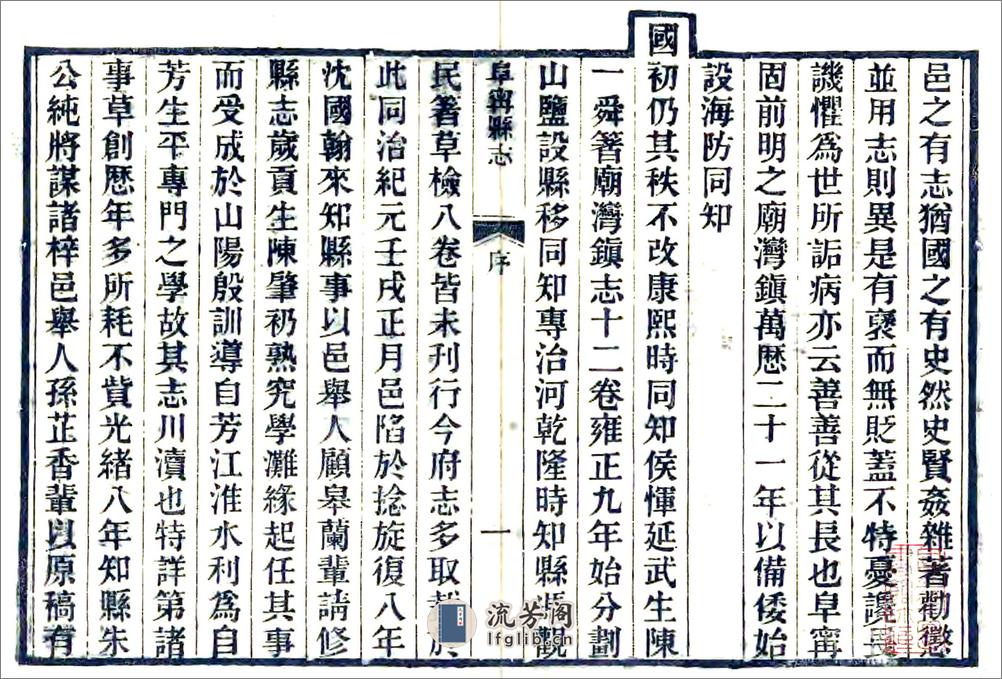 邑之有志猶國之有史然史賢姦雜著勸懲
並用志則異是有褒而無貶蓋不特憂讒
譏懼為世所詬病亦云善善從其長也阜寧
固前明之廟灣鎮萬厯二十一年以備倭始
設海防同知
國初仍其秩不改康熙時同知侯惲延武生陳
一舜箸廟灣鎮志十二卷雍正九年始分劃
山鹽設縣移同知專治河乾隆時知縣觀
阜寧縣志
序
一
民箸草檢八卷皆未刊行今府志多取於
此同治紀元壬戌正月邑陷於捻旋復八年
沈國翰來知縣事以邑舉人顧皋蘭輩請修
縣志歲貢生陳肇礽熟究學灘緣起任其事
而受成於山陽殷訓導自芳江淮水利為自
芳生平專門之學故其志川瀆也特詳第諸
事草創厯年多所耗不貲光緒八年知縣朱
公純將謀諸梓邑舉人孫芷香輩以原稿有
流芳阁
lfglib.cn